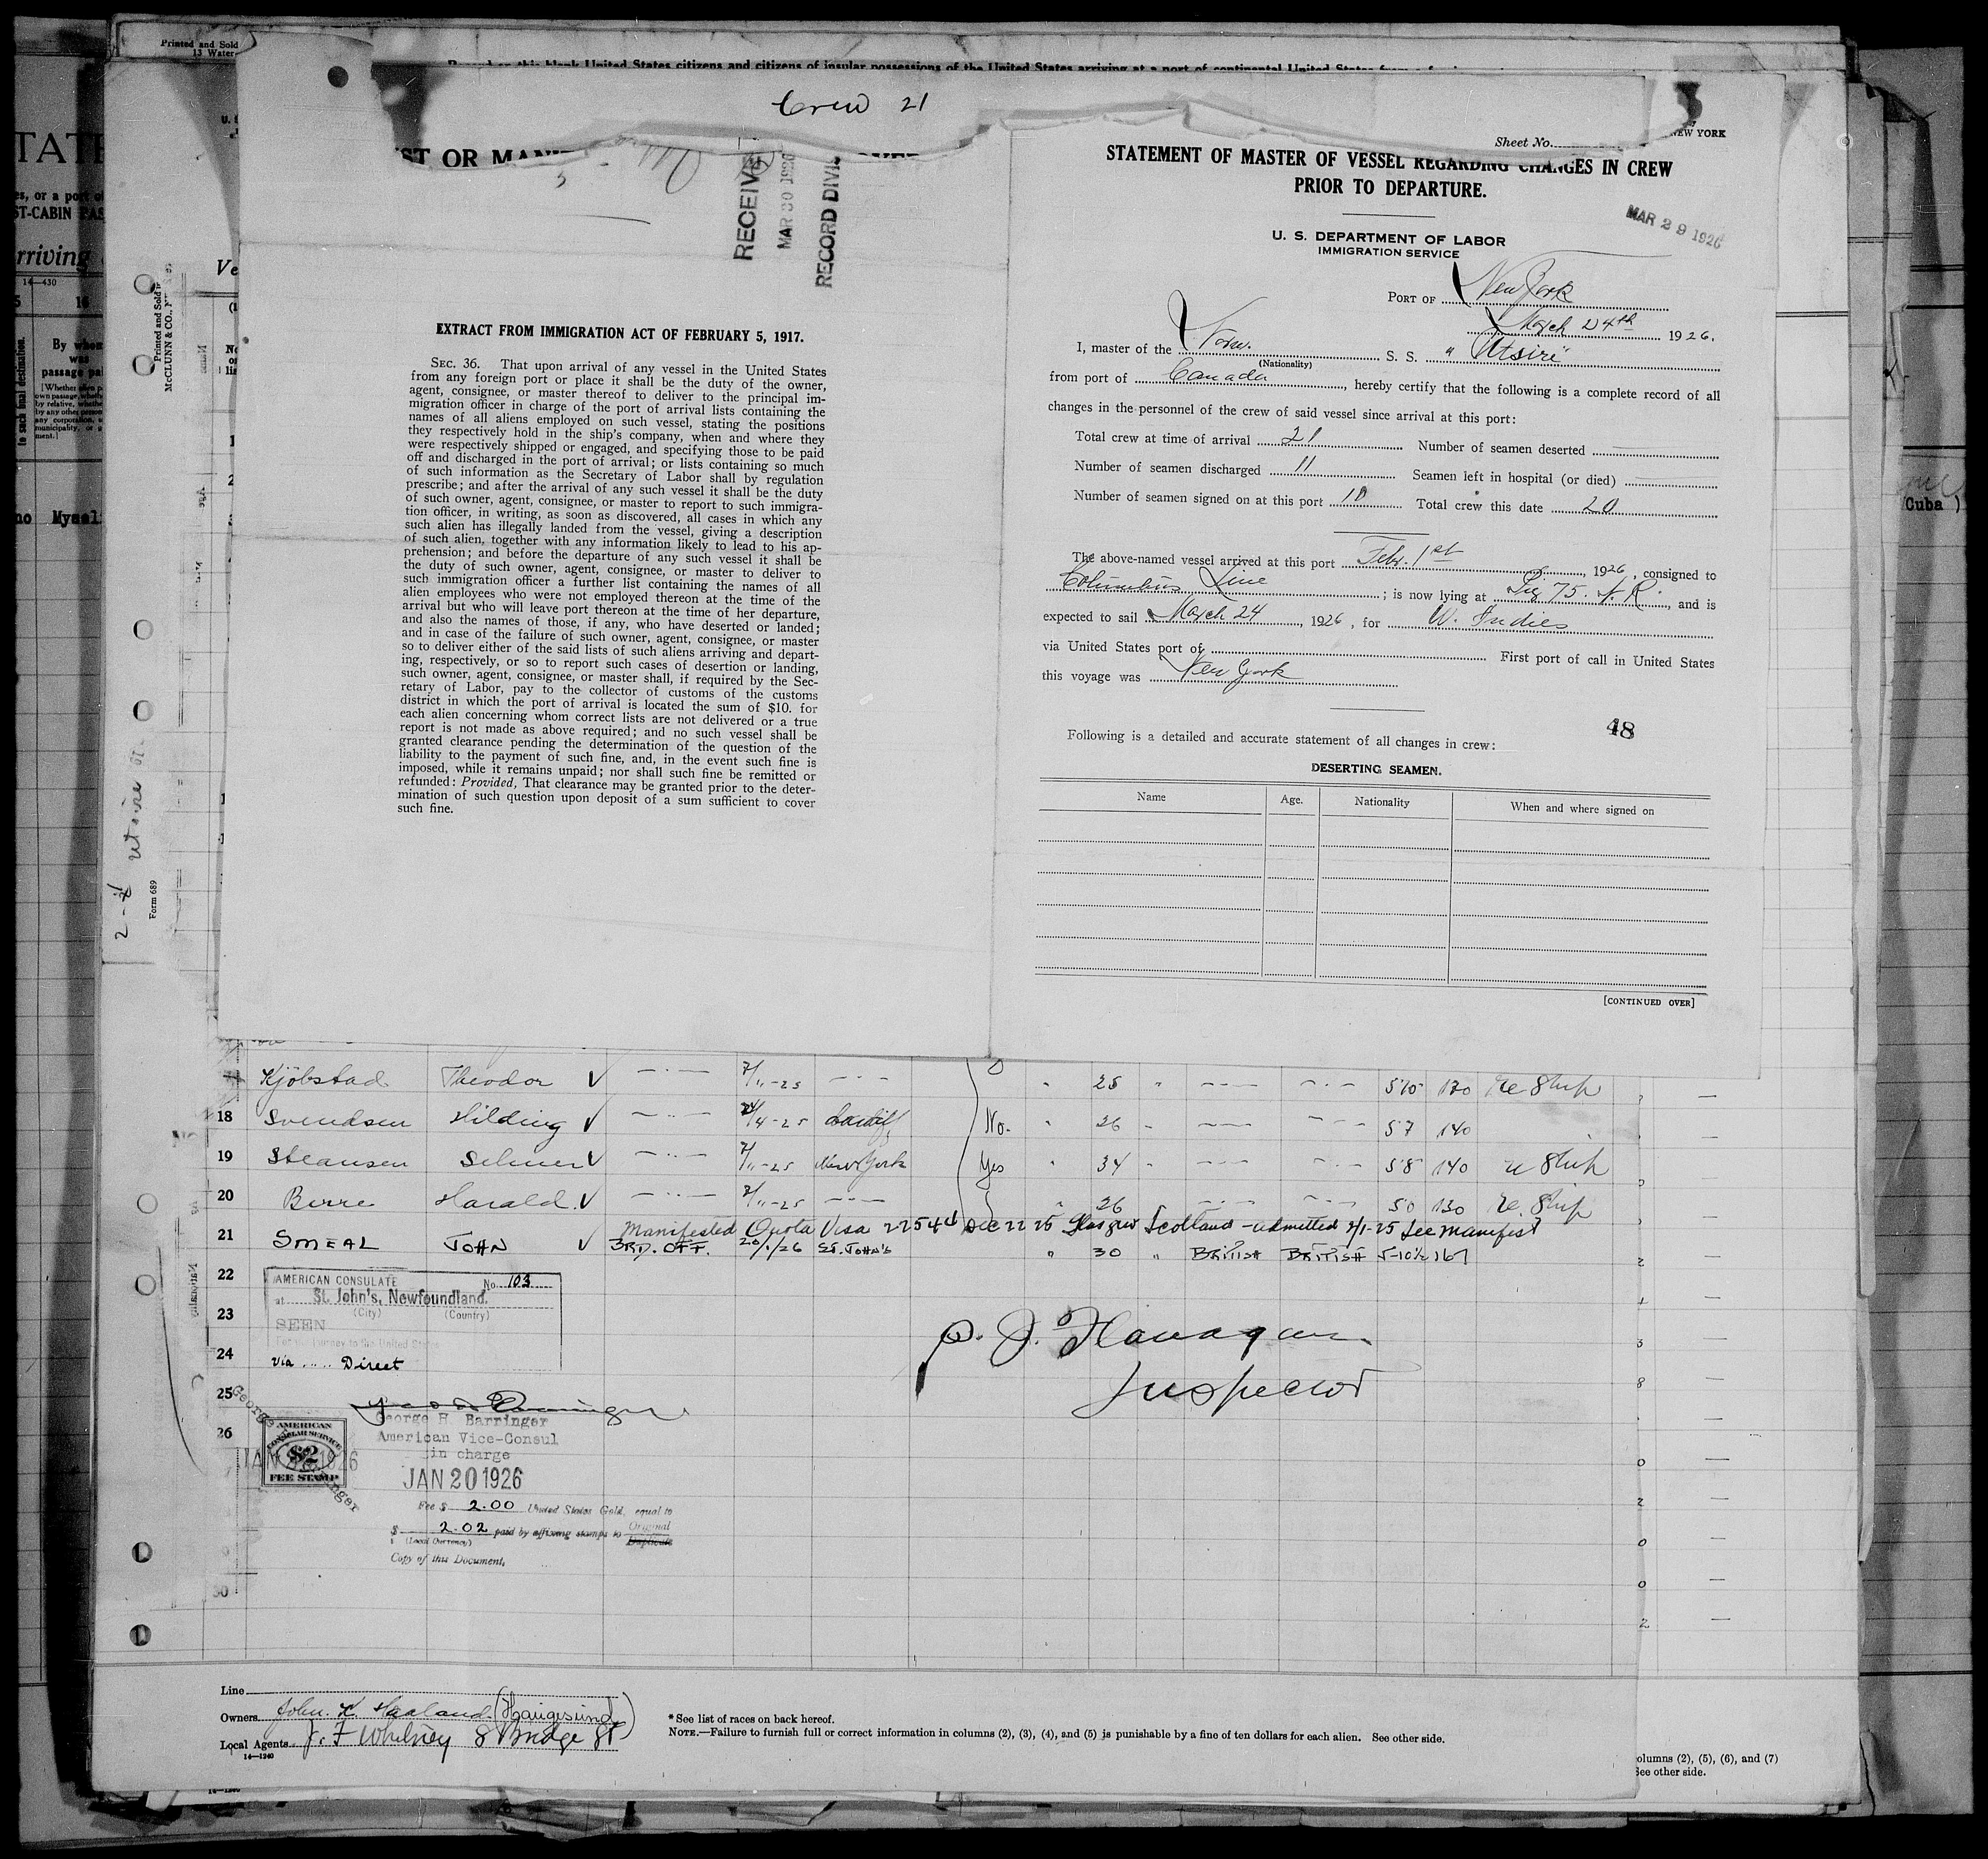 Printed and Sold
13 Water
Record on this blank United States citizens and citizens of insular possessions of the United States arriving at a port of continental United States from a
Crew 21
Sheet No.
NEW YORK
ST OR
RECEIV
MAR 30 192
RECORD DIVIS
EXTRACT FROM IMMIGRATION ACT OF FEBRUARY 5, 1917.
SEC. 36. That upon arrival of any vessel in the United States
from any foreign port or place it shall be the duty of the owner,
agent, consignee, or master thereof to deliver to the principal im-
migration officer in charge of the port of arrival lists containing the
names of all aliens employed on such vessel, stating the positions
they respectively hold in the ship's company, when and where they
were respectively shipped or engaged, and specifying those to be paid
off and discharged in the port of arrival; or lists containing so much
of such information as the Secretary of Labor shall by regulation
prescribe; and after the arrival of any such vessel it shall be the duty
of such owner, agent, consignee, or master to report to such immigra-
tion officer, in writing, as soon as discovered, all cases in which any
such alien has illegally landed from the vessel, giving a description
of such alien, together with any information likely to lead to his ap-
prehension; and before the departure of any such vessel it shall be
the duty of such owner, agent, consignee, or master to deliver to
such immigration officer a further list containing the names of all
alien employees who were not employed thereon at the time of the
arrival but who will leave port thereon at the time of her departure,
and also the names of those, if any, who have deserted or landed;
and in case of the failure of such owner, agent, consignee, or master
so to deliver either of the said lists of such aliens arriving and depart-
ing, respectively, or so to report such cases of desertion or landing,
such owner, agent, consignee, or master shall, if required by the Sec-
retary of Labor, pay to the collector of customs of the customs
district in which the port of arrival is located the sum of $10. for
each alien concerning whom correct lists are not delivered or a true
report is not made as above required; and no such vessel shall be
granted clearance pending the determination of the question of the
liability to the payment of such fine, and, in the event such fine is
imposed, while it remains unpaid; nor shall such fine be remitted or
refunded: Provided, That clearance may be granted prior to the deter-
mination of such question upon deposit of a sum sufficient to cover
such fine.
STATEMENT OF MASTER OF VESSEL REGARDING CHANGES IN CREW
PRIOR TO DEPARTURE.
MAR 29 1926
U. S. DEPARTMENT OF LABOR
IMMIGRATION SERVICE
PORT OF New York
March 24th 1926.
I, master of the Norw. S. S. "Utsire"
(Nationality)
from port of Canada, hereby certify that the following is a complete record of all
changes in the personnel of the crew of said vessel since arrival at this port:
Total crew at time of arrival 21 Number of seamen deserted
Number of seamen discharged 11 Seamen left in hospital (or died)
Number of seamen signed on at this port 10 Total crew this date 20
The above-named vessel arrived at this port Febr. 1st, 1926, consigned to
Columbus Line; is now lying at Pier 75. N. R., and is
expected to sail March 24, 1926, for W. Indies
via United States port of First port of call in United States
this voyage was New York
48
Following is a detailed and accurate statement of all changes in crew:
DESERTING SEAMEN.
Name Age. Nationality When and where signed on
[CONTINUED OVER]
Kjöbstad Theodor 25 510 130
18 Svendsen Hilding Cardiff No. 26 57 140
19 Selmer New York Yes 34 58 140
20 Berre Harald 26 50 130
Manifested Quota Visa 22544 Dec 22 25 Glasgow Scotland - admitted 2/1-25 See manifest
21 SMEAL JOHN 3RD. OFF. 20/1/26 ST. JOHN'S 30 BRITISH BRITISH 5-10½ 167
22
23
24
25
26
30
AMERICAN CONSULATE No. 103
at St. John's, Newfoundland.
(City) (Country)
SEEN
For the journey to the United States
Via Direct
George H Barringer
American Vice-Consul
in charge
JAN 20 1926
AMERICAN
CONSULAR SERVICE
$2
FEE STAMP
Fee $ 2.00 United States Gold, equal to
$ 2.02 paid by affixing stamps to Original
(Local Currency) Duplicate
Copy of this Document.
P. J. Flanagan
Inspector
Line
Owners John. K. Haaland (Haugesund)
Local Agents J. F Whitney 8 Bridge St
14—1240
*See list of races on back hereof.
NOTE.—Failure to furnish full or correct information in columns (2), (3), (4), and (5) is punishable by a fine of ten dollars for each alien. See other side.
olumns (2), (5), (6), and (7)
See other side.
Form 689
Printed and Sold
McCLUNN & CO., N
TATE
es, or a port of
ST-CABIN PAS
rriving
14—430
16
By whom
was
passage pai
no Mysel
Cuba )